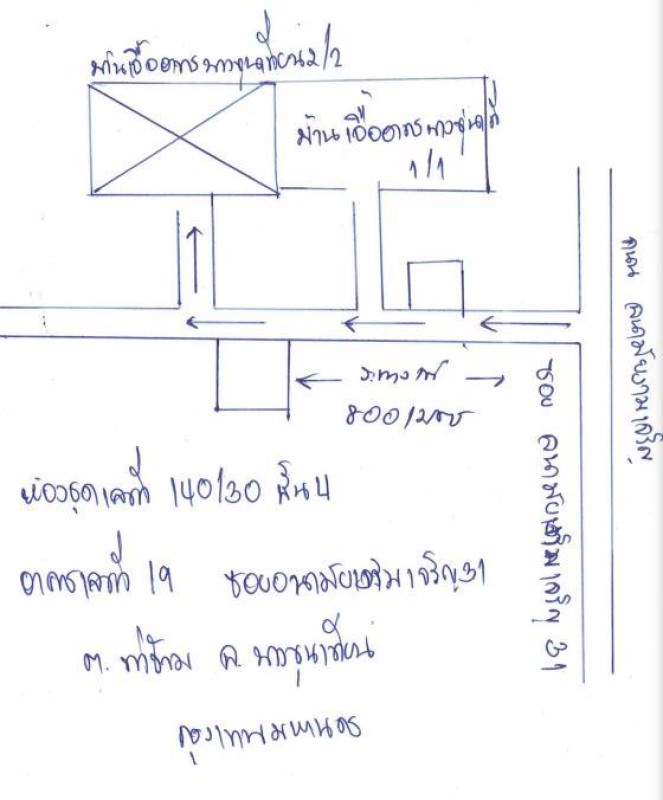 บ้านเอื้ออาทรบางขุนเทียน2/2
บ้านเอื้ออาทรบางขุนเทียน
1/1
ถนน อนามัยงามเจริญ
ระยะทาง
800 เมตร
ซอย อนามัยงามเจริญ 31
ห้องชุดเลขที่ 140/30 ชั้น 4
อาคารเลขที่ 19 ซอยอนามัยงามเจริญ31
ต. ท่าข้าม อ. บางขุนเทียน
กรุงเทพมหานคร